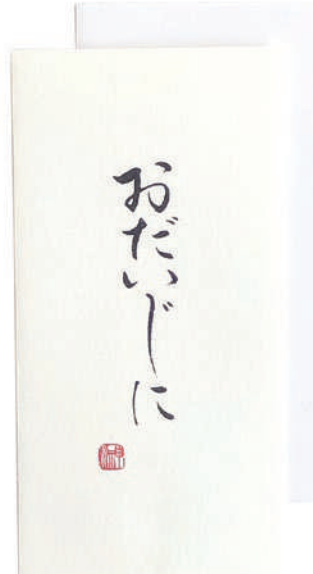 おだいじに